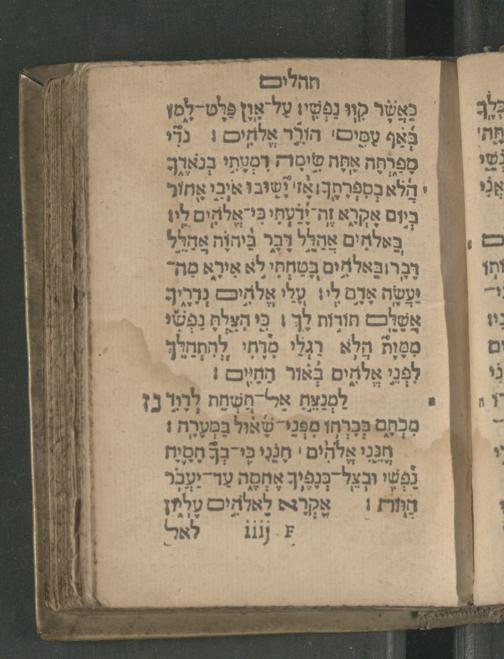 תהלים
כַּאֲשֶׁר קִוּוּ נַפְשִׁי׃ עַל־אָוֶן פַּלֶּט־לָמוֹ
בְּאַף עַמִּים הוֹרֵד אֱלֹהִים׃ נֹדִי
סָפַרְתָּה אָתָּה שִׂימָה דִמְעָתִי בְנֹאדֶךָ
הֲלֹא בְּסִפְרָתֶךָ׃ אָז יָשׁוּבוּ אוֹיְבַי אָחוֹר
בְּיוֹם אֶקְרָא זֶה־יָדַעְתִּי כִּי־אֱלֹהִים לִי׃
בֵּאלֹהִים אֲהַלֵּל דָּבָר בַּיהוָה אֲהַלֵּל
דָּבָר׃ בֵּאלֹהִים בָּטַחְתִּי לֹא אִירָא מַה־
יַּעֲשֶׂה אָדָם לִי׃ עָלַי אֱלֹהִים נְדָרֶיךָ
אֲשַׁלֵּם תּוֹדוֹת לָךְ׃ כִּי הִצַּלְתָּ נַפְשִׁי
מִמָּוֶת הֲלֹא רַגְלַי מִדֶּחִי לְהִתְהַלֵּךְ
לִפְנֵי אֱלֹהִים בְּאוֹר הַחַיִּים׃
לַמְנַצֵּחַ אַל־תַּשְׁחֵת לְדָוִד נז
מִכְתָּם בְּבָרְחוֹ מִפְּנֵי־שָׁאוּל בַּמְּעָרָה׃
חָנֵּנִי אֱלֹהִים חָנֵּנִי כִּי־בְךָ חָסָיָה
נַפְשִׁי וּבְצֵל־כְּנָפֶיךָ אֶחְסֶה עַד־יַעֲבֹר
הַוּוֹת׃ אֶקְרָא לֵאלֹהִים עֶלְיוֹן
לאל iiij F